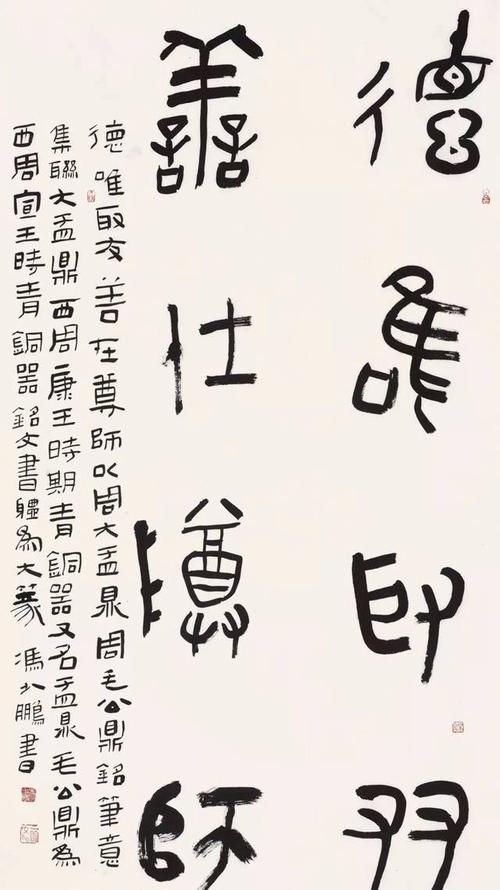 德唯取友
善在尊師
德唯取友善在尊師以周大盂鼎周毛公鼎銘筆意
集聯大盂鼎西周康王時期青銅器又名盂鼎毛公鼎為
西周宣王時青銅器銘文書體為大篆 馮鵬書